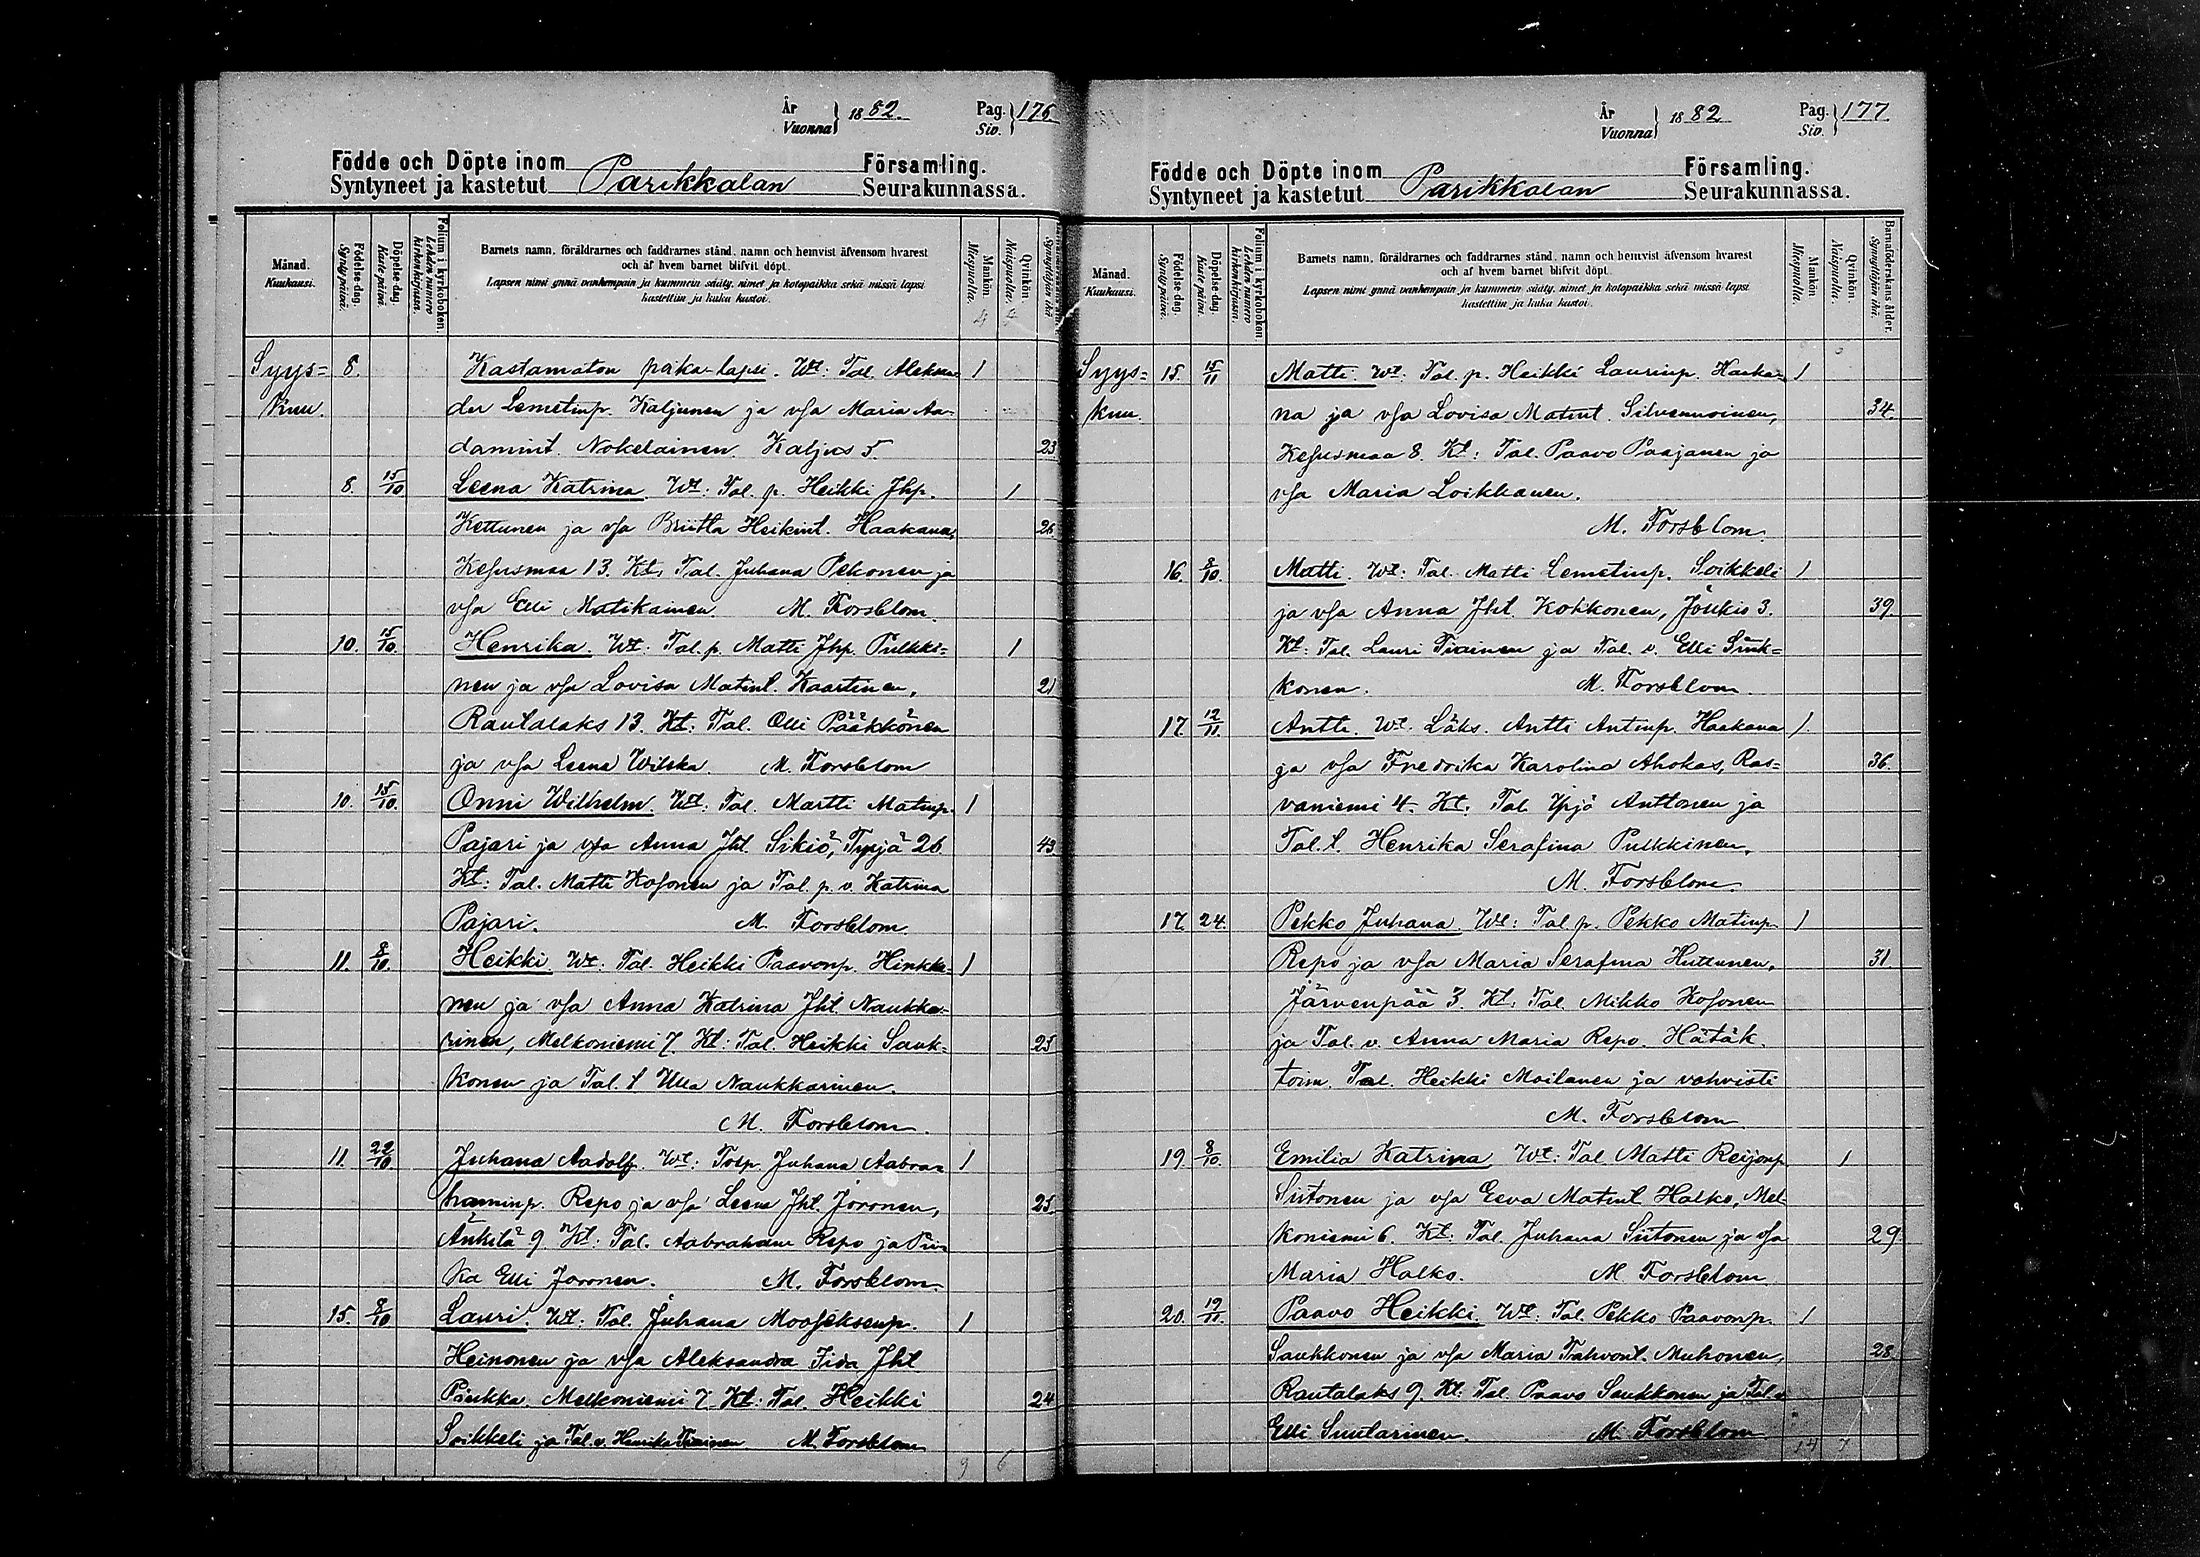 År
Vuonna } 1882. Pag.
Siv. } 176
Födde och Döpte inom Parikkalan Församling.
Syntyneet ja kastetut Seurakunnassa.
Månad.
Kuukausi.
Födelse-dag.
Syntypäivä.
Döpelse-dag.
Kastepäivä.
Folium i kyrkoboken.
Lehden numero kirkonkirjassa.
Barnets namn, föräldrarnes och faddrarnes stånd, namn och hemvist äfvensom hvarest
och af hvem barnet blifvit döpt.
Lapsen nimi ynnä vanhempain ja kummein sääty, nimet ja kotopaikka sekä missä lapsi
kastettiin ja kuka kastoi.
Mankön.
Miespuolia.
Qvinkön.
Naispuolia.
Synnyttäjän ikä
Syys= 8. Kastamaton poika-lapsi. Wt: Tal. Aleksan- 1
kuu. der Lemetinp. Kaljunen ja vsa Maria Aa-
damint. Nokelainen Kaljus 5. 23
8. 15/10 Leena Katrina. Wt: Tal. p. Heikki Jhp. 1
Kettunen ja vsa Briitta Heikint. Haakana, 26
Kesusmaa 13. Kt: Tal. Juhana Pekonen ja
vsa Elli Matikainen. M. Forsblom.
10. 15/10. Henrika. Wt: Tal. p. Matti Jhp. Pulkki= 1
nen ja vsa Lovisa Matint. Kaartinen, 21
Rautalaks 13. Kt: Tal. Olli Pääkkönen
ja vsa Leena Wilska. M. Forsblom
10. 15/10. Onni Wilhelm. Wt: Tal. Martti Matinp. 1
Pajari ja vsa Anna Jht. Sikiö, Tyrjä 26. 43
Kt: Tal. Matti Kosonen ja Tal. p. v. Katrina
Pajari. M. Forsblom
11. 8/10. Heikki. Wt: Tal. Heikki Paavonp. Hinkka- 1
nen ja vsa Anna Katrina Jht. Naukka-
rinen, Melkoniemi 7. Kt: Tal. Heikki Sauk- 25
konen ja Tal. t Ulla Naukkarinen.
M. Forsblom.
11. 22/10. Juhana Aadolf. Wt: Tal.p. Juhana Aabra- 1
haminp. Repo ja vsa Leena Jht. Joronen, 25.
Änkilä 9. Kt: Tal. Aabraham Repo ja Pii-
ka Elli Joronen. M. Forsblom.
15. 8/10 Lauri. Wt: Tal. Juhana Mooseksenp. 1
Heinonen ja vsa Aleksandra Iida Jht
Melkoniemi 7. Kt: Tal. Heikki 24
Soikkeli ja Tal. v. Henrika Tiainen M. Forsblom
9 6
År
Vuonna } 1882 Pag.
Siv. } 177
Födde och Döpte inom Parikkalan Församling.
Syntyneet ja kastetut Seurakunnassa.
Månad.
Kuukausi.
Födelse-dag.
Syntypäivä.
Döpelse-dag.
Kastepäivä.
Folium i kyrkoboken.
Lehden numero kirkonkirjassa.
Barnets namn, föräldrarnes och faddrarnes stånd, namn och hemvist äfvensom hvarest
och af hvem barnet blifvit döpt.
Lapsen nimi ynnä vanhempain ja kummein sääty, nimet ja kotopaikka sekä missä lapsi
kastettiin ja kuka kastoi.
Mankön.
Miespuolia.
Qvinkön.
Naispuolia.
Barnaföderskans ålder.
Synnyttäjän ikä.
Syys= 15. 15/11 Matti. Wt: Tal. p. Heikki Laurinp. Haaka- 1
kuu. na ja vsa Lovisa Matint. Silvennoinen, 34.
Kesusmaa 8. Kt: Tal. Paavo Paajanen ja
vsa Maria Loikkanen.
M. Forsblom.
16. 8/10. Matti. Wt: Tal. Matti Lemetinp. Soikkeli 1
ja vsa Anna Jht. Kokkonen, Joukio 3. 39.
Kt: Tal. Lauri Tiainen ja Tal. v. Elli Sink=
konen. M. Forsblom.
17. 12/11. Antti. Wt: Läks. Antti Antinp. Haakana 1.
ja vsa Fredrika Karolina Ahokas, Ras= 36.
vaniemi 4. Kt: Tal. Yrjö Anttonen ja
Tal. t. Henrika Serafina Pulkkinen.
M. Forsblom.
17. 24. Pekko Juhana. Wt: Tal p. Pekko Matinp. 1
Repo ja vsa Maria Serafina Huttunen, 31.
Järvenpää 3. Kt: Tal. Mikko Kosonen
ja Tal. v. Anna Maria Repo. Hätäk.
toim. Tal. Heikki Moilanen ja vahvisti
M. Forsblom
19. 8/10. Emilia Katrina Wt: Tal. Matti Reijonp. 1
Siitonen ja vsa Eeva Matint. Halko, Mel-
koniemi 6. Kt: Tal. Juhana Siitonen ja vsa 29
Maria Halko. M. Forsblom
20. 12/11. Paavo Heikki. Wt: Tal. Pekko Paavonp. 1
Saukkonen ja vsa Maria Tahvont. Muhonen, 28.
Rautalaks 9. Kt: Tal. Paavo Saukkonen ja Tal. v.
Elli Suutarinen. M. Forsblom
14 7